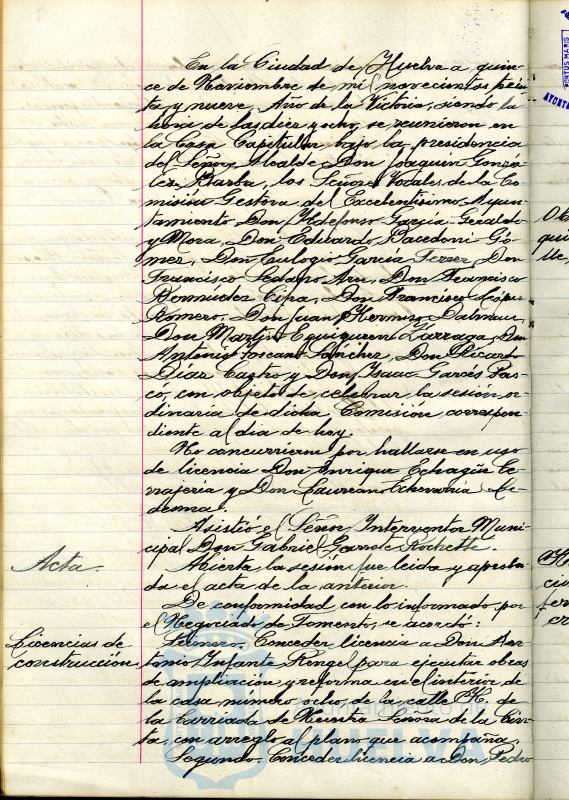 En la Ciudad de Huelva a quin-
ce de Noviembre de mil novecientos trein-
ta y nueve, Año de la Victoria, siendo la
hora de las diez y ocho, se reunieron en
la Casa Capitular bajo la presidencia
del Señor Alcalde Don Joaquin Gonza-
lez Barba, los Señores Vocales de la Co-
misión Gestora del Excelentísimo Ayun-
tamiento Don Ildefonso Garcia-Geraldo
y Mora, Don Eduardo Pacedoni Gó-
mez, Don Eulogio Garcia Ferrer, Don
Francisco Sedano Arce, Don Francisco
Bermudez Cipa, Don Francisco López
Romero, Don Juan Dalmau,
Don Martin Eguiguren Zarraga, Don
Antonio Toscano Sánchez, Don Ricardo
Díaz Castro y Don Isaac Garcés Pas-
co, con objeto de celebrar la sesión or-
dinaria de dicha Comisión correspon-
diente al dia de hoy.
No concurrieron por hallarse en uso
de licencia Don Enrique Echagüe Ce-
rajeria y Don Laureano Echevarría Le-
desma.
Asistió el Señor Interventor Muni-
cipal Don Gabriel Garrote Rochette.
Acta.
Abierta la sesión fue leida y aproba-
da el acta de la anterior.
De conformidad con lo informado por
el Negociado de Fomento, se acordó:
Licencias de
construccion.
Primero. Conceder licencia a Don An-
tonio Infante Rengel para ejecutar obras
de ampliación y reforma en el interior de
la casa numero ocho de la calle H. de
la barriada de Nuestra Señora de la Cin-
ta, con arreglo al plano que acompaña.
Segundo. Conceder licencia a Don Pedro
PORTUS MARIS
HUELVA